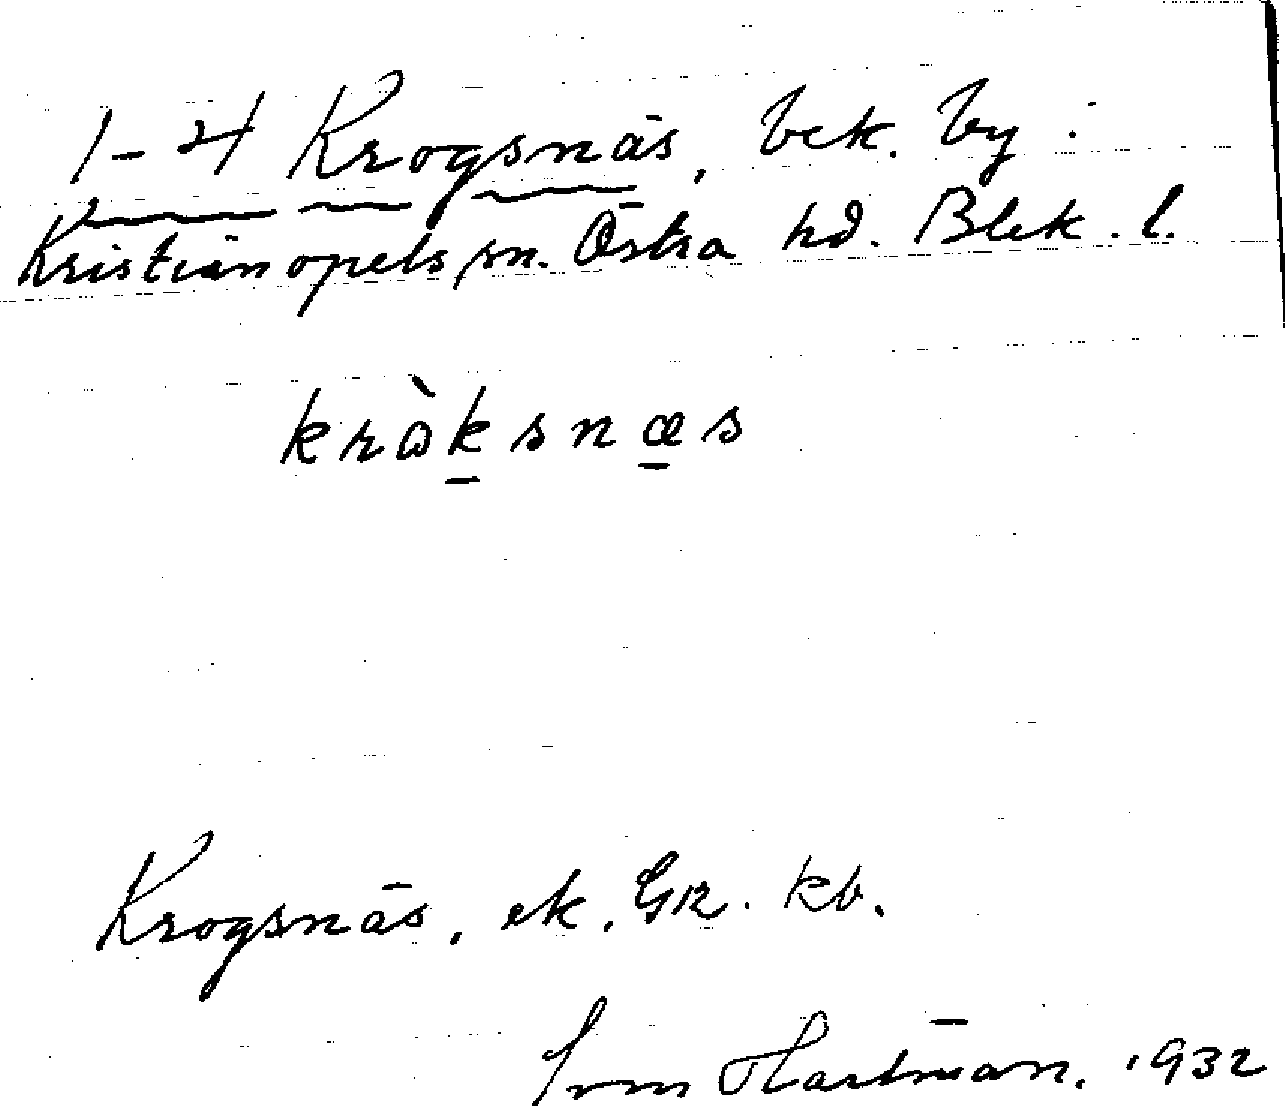 1-4 Krogsnäs, bek. by :
Kristianopels sn. Östra hd. Blek. l.
kròksnæs
Krogsnäs, ek. GR. kb.
Hartman. 1932